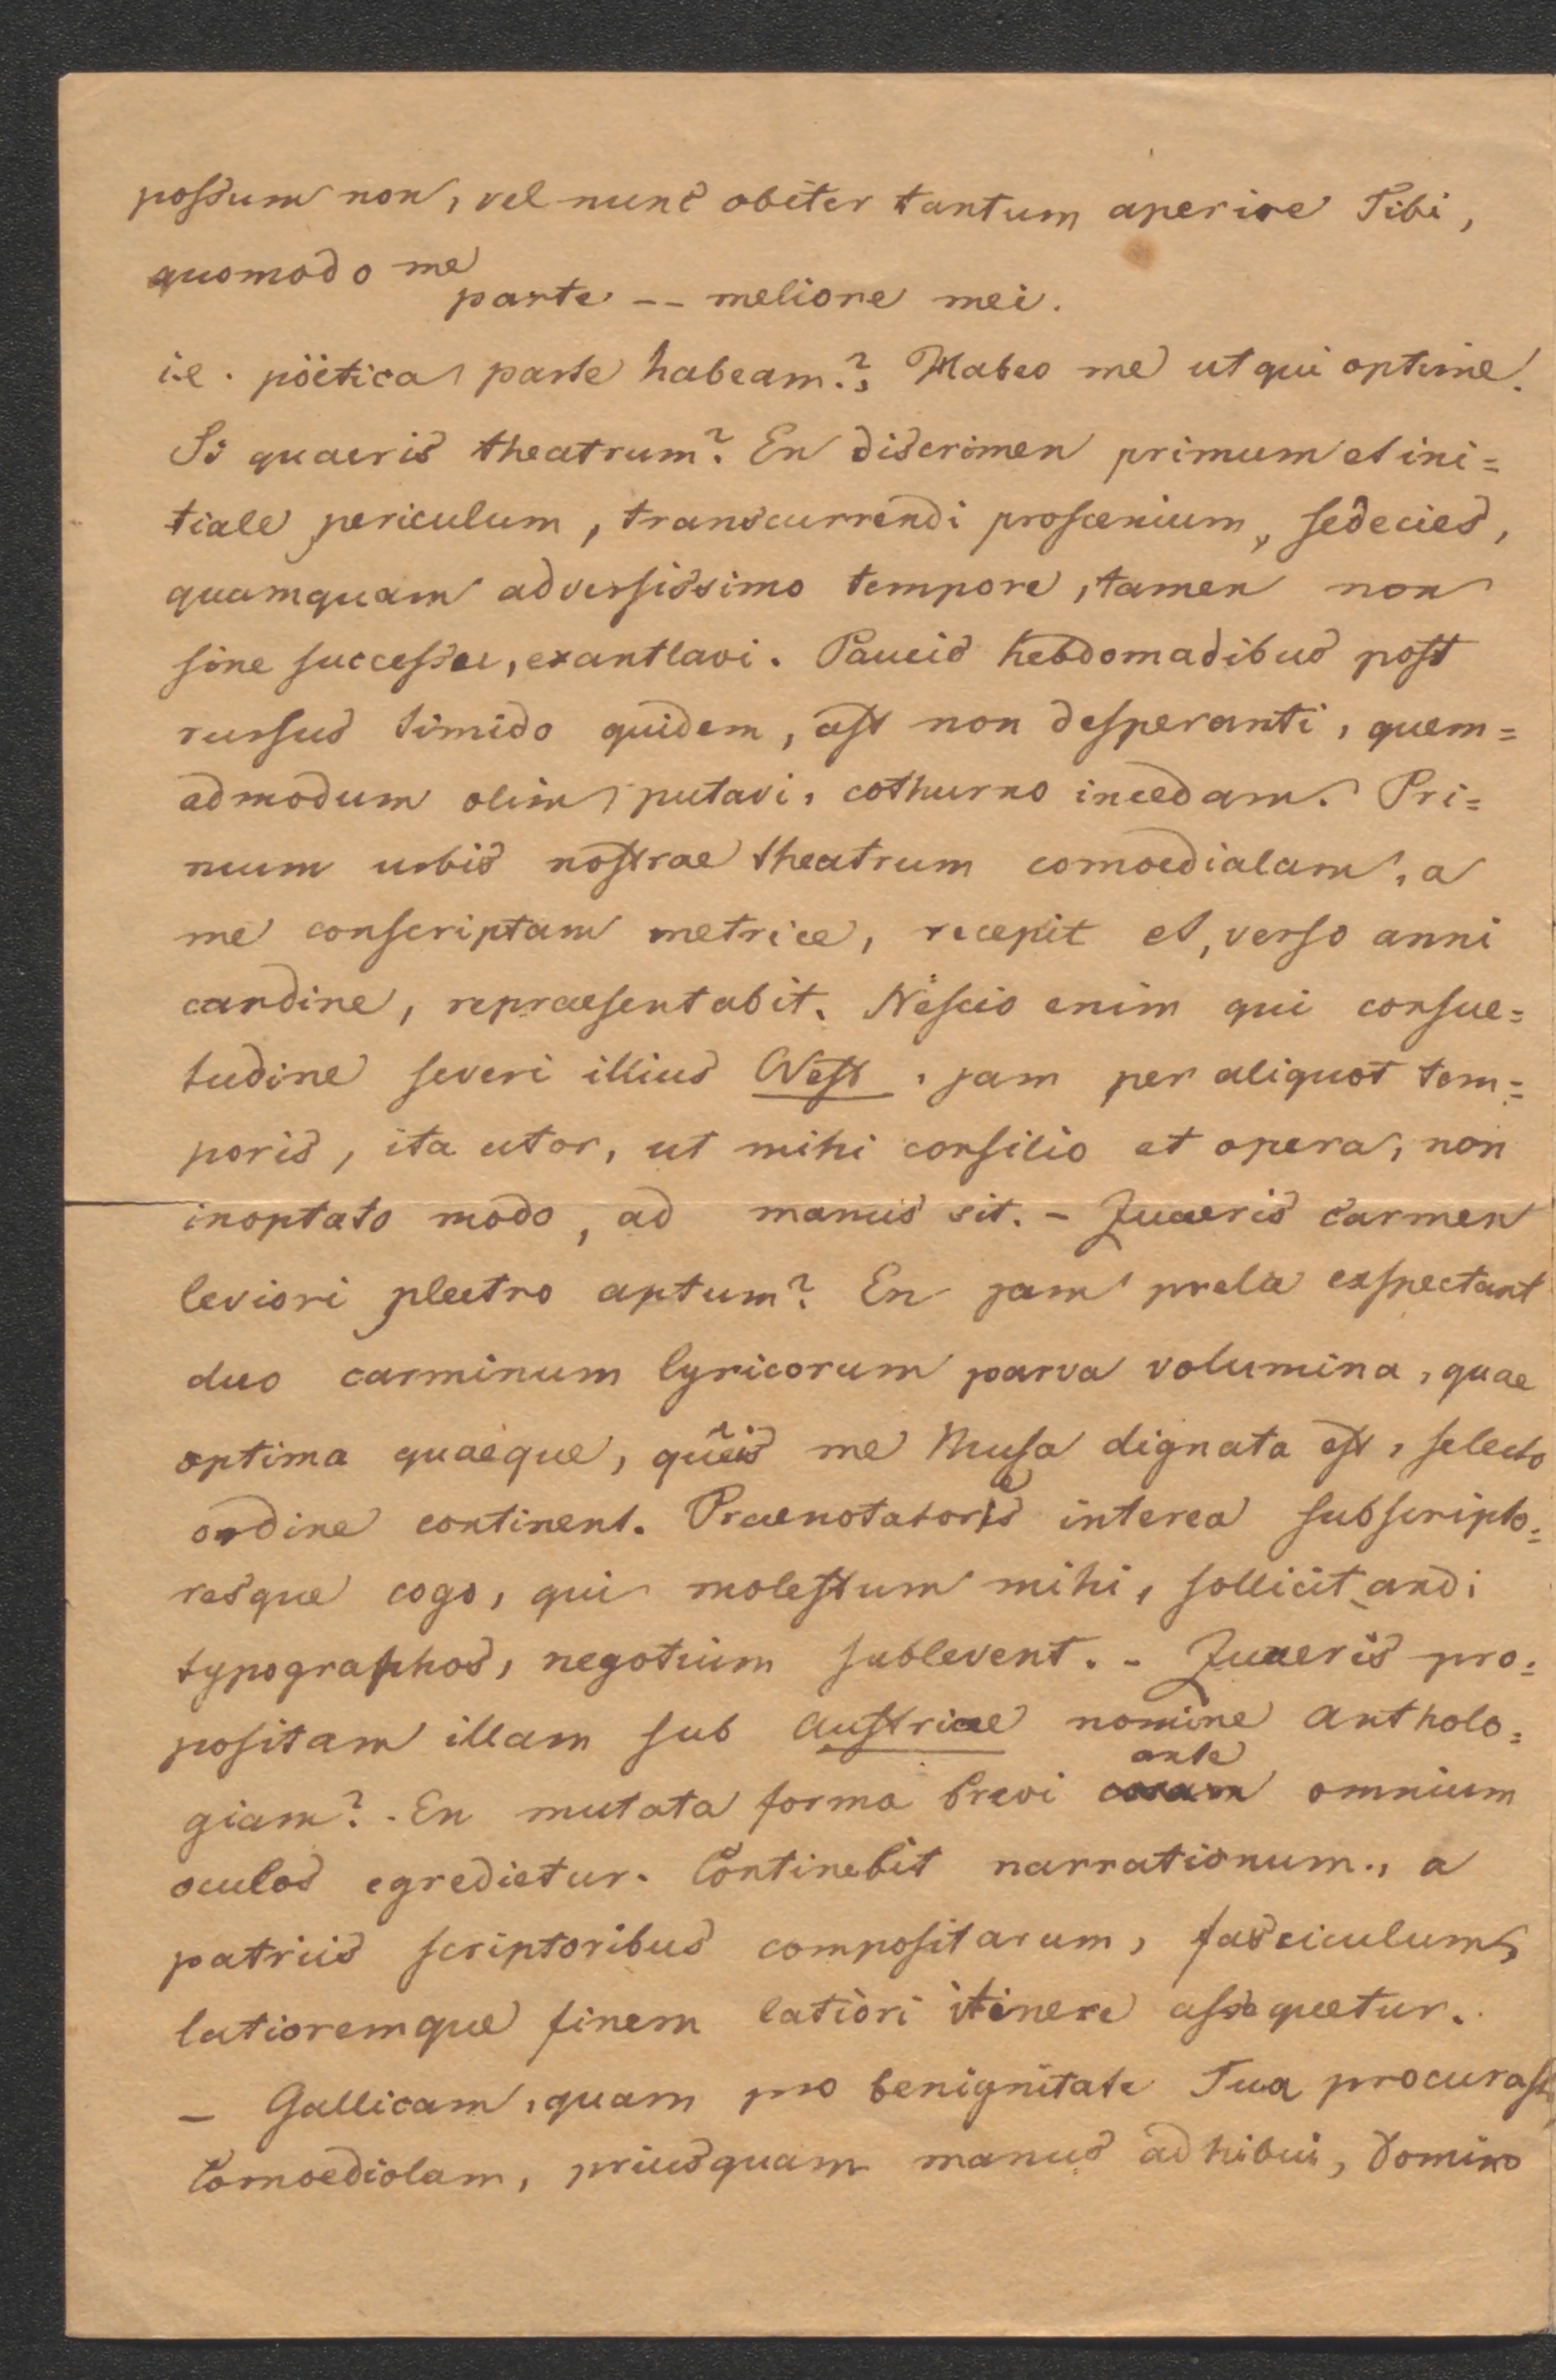 possum non, vel nunc obiter tantum aperire Tibi,
quomodo me
parte -- meliore mei.
i.e. pöetica parte habeam.? Habeo me ut qui optime.
Si quaeris theatrum? En discrimen primum et ini=
tiale periculum, transcurrendi proscenium, sedecies,
quamquam adversissimo tempore, tamen non
sine successu, exantlavi. Paucis hebdomadibus post
rursus timido quidem, ast non desperanti, quem=
admodum olim putavi, cothurno incedam. Pri=
mum urbis nostrae theatrum comoedialam, a
me conscriptam metrice, recepit et, verso anni
cardine, repraesentabit. Nescio enim qui consue=
tudine severi illius West, jam per aliquot tem=
poris, ita utor, ut mihi consilio et opera, non
inoptato modo, ad manus sit. - Quaeris carmen
leviori plectro aptum? En jam prela exspectant
duo carminum lyricorum parva volumina, quae
optima quaeque, queis me Musa dignata est, selecto
ordine continent. Praenotatores interea subscripto=
resque cogo, qui molestum mihi, sollicitandi
typographos, negotium sublevent. - Quaeris pro=
positam illam sub Austriae nomine antholo=
giam? - En mutata forma brevi coram ante omnium
oculos egredietur. Continebit narrationum, a
patriis scriptoribus compositarum, fasciculum,
latioremque finem latiori itinere assequetur.
- Gallicam, quam pro benignitate Tua procurasti,
Comoediolam, priusquam manus adhibui, Domino